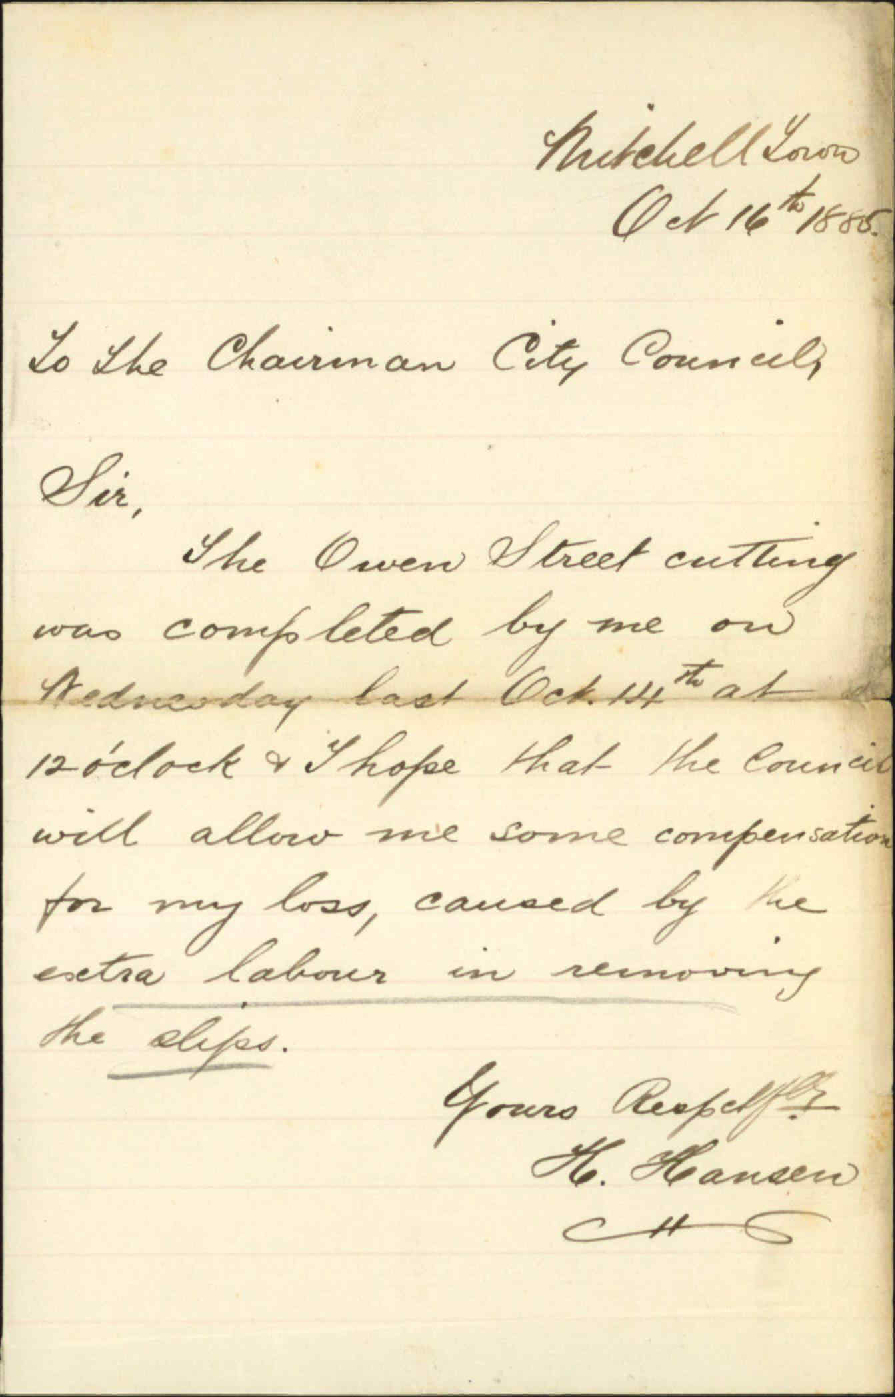 Mitchell Town
Oct 16th 1885.
To The Chairman City Council,
Sir,
The Owen Street cutting
was completed by me on
Wednesday last Oct. 14th at
12 o'clock & I hope that the Council
will allow me some compensation
for my loss, caused by the
extra labour in removing
the slips.
Yours Respctfly
H. Hansen